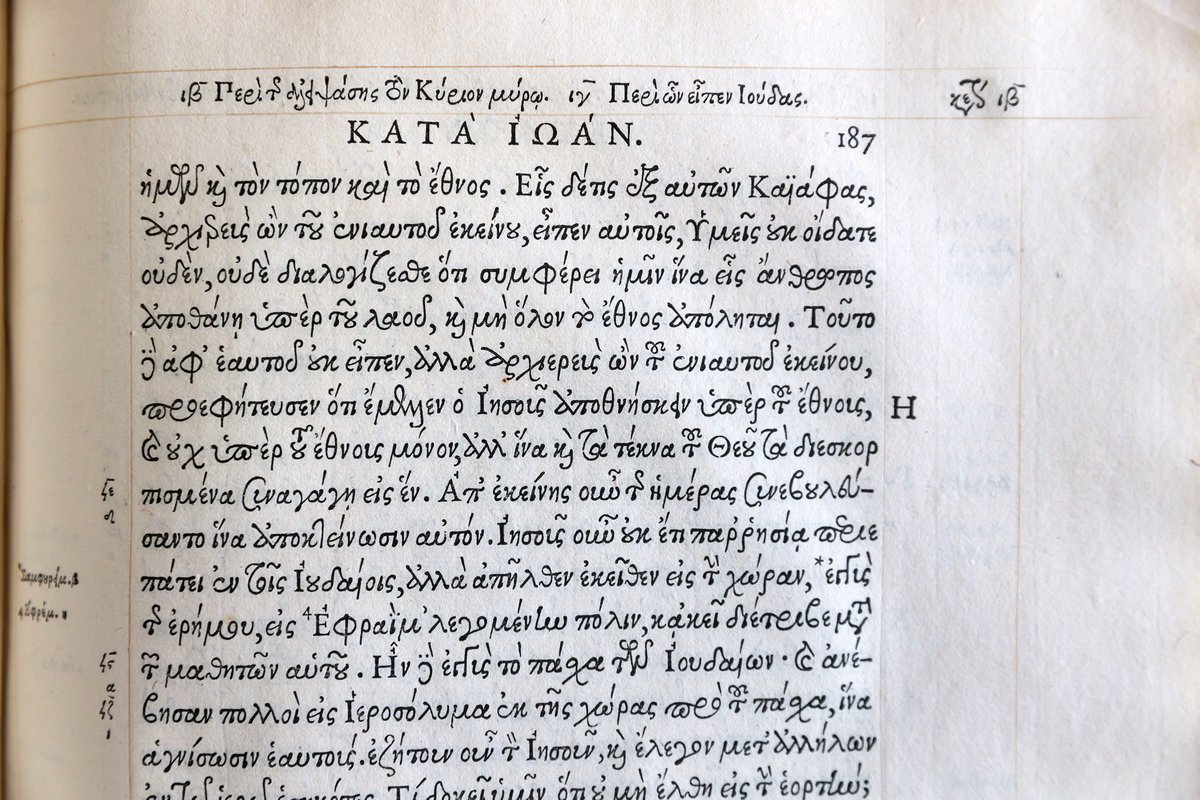 ιβ Περὶ τῆς ἀλειψάσης τὸν Κύριον μύρῳ. ιγ Περὶ ὧν εἶπεν Ιούδας. κεφ ιβ
ΚΑΤΑ` ἸΩΑ´Ν. 187
ἡμῶν καὶ τὸν τόπον καὶ τὸ ἔθνος. Εἷς δέ τις ἐξ αὐτῶν Καϊάφας,
ἀρχιερεὺς ὢν τοῦ ἐνιαυτοῦ ἐκείνου, εἶπεν αὐτοῖς, Ὑμεῖς οὐκ οἴδατε
οὐδὲν, οὐδὲ διαλογίζεσθε ὅτι συμφέρει ἡμῖν ἵνα εἷς ἄνθρωπος
ἀποθάνῃ ὑπὲρ τοῦ λαοῦ, καὶ μὴ ὅλον τὸ ἔθνος ἀπόληται. Τοῦτο
δὲ ἀφ' ἑαυτοῦ οὐκ εἶπεν, ἀλλὰ ἀρχιερεὺς ὢν τοῦ ἐνιαυτοῦ ἐκείνου,
προεφήτευσεν ὅτι ἔμελλεν ὁ Ἰησοῦς ἀποθνήσκειν ὑπὲρ τοῦ ἔθνους, Η
καὶ οὐχ ὑπὲρ τοῦ ἔθνους μόνον, ἀλλ' ἵνα καὶ τὰ τέκνα τοῦ Θεοῦ τὰ διεσκορ
ξε πισμένα συναγάγῃ εἰς ἕν. Ἀπ' ἐκείνης οὖν τῆς ἡμέρας συνεβουλεύ-
δ
σαντο ἵνα ἀποκτείνωσιν αὐτόν. Ἰησοῦς οὖν οὐκ ἔτι παῤῥησίᾳ περιε
πάτει ἐν τοῖς Ἰουδαίοις, ἀλλὰ ἀπῆλθεν ἐκεῖθεν εἰς τὴν χώραν, *ἐγγὺς
τῆς ἐρήμου, εἰς Ἐφραὶμ λεγομένην πόλιν, κᾀκεῖ διέτριβε μετὰ
ξϛ τῶν μαθητῶν αὐτοῦ. Ἦν δὲ ἐγγὺς τὸ πάσχα τῶν Ἰουδαίων· καὶ ἀνέ-
α
ξζ βησαν πολλοὶ εἰς Ἱεροσόλυμα ἐκ τῆς χώρας πρὸ τοῦ πάσχα, ἵνα
ι
ἁγνίσωσιν ἑαυτούς. ἐζήτουν οὖν τὸν Ἰησοῦν, καὶ ἔλεγον μετ' ἀλλήλων
ἐν τῷ ἱερῷ ἑστηκότες, Τί δοκεῖ ὑμῖν ὅτι οὐ μὴ ἔλθῃ εἰς τὴν ἑορτήν;